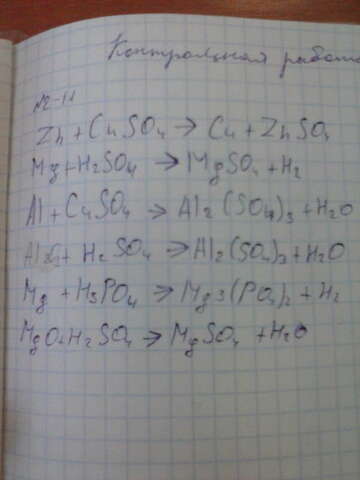 Контрольная работа
№2-11
Zn + CuSO4 → Cu + ZnSO4
Mg + H2SO4 → MgSO4 + H2
Al + CuSO4 → Al2(SO4)3 + H2O
+ H2SO4 → Al2(SO4)3 + H2O
Mg + H3PO4 → Mg3(PO4)2 + H2
MgO + H2SO4 → MgSO4 + H2O